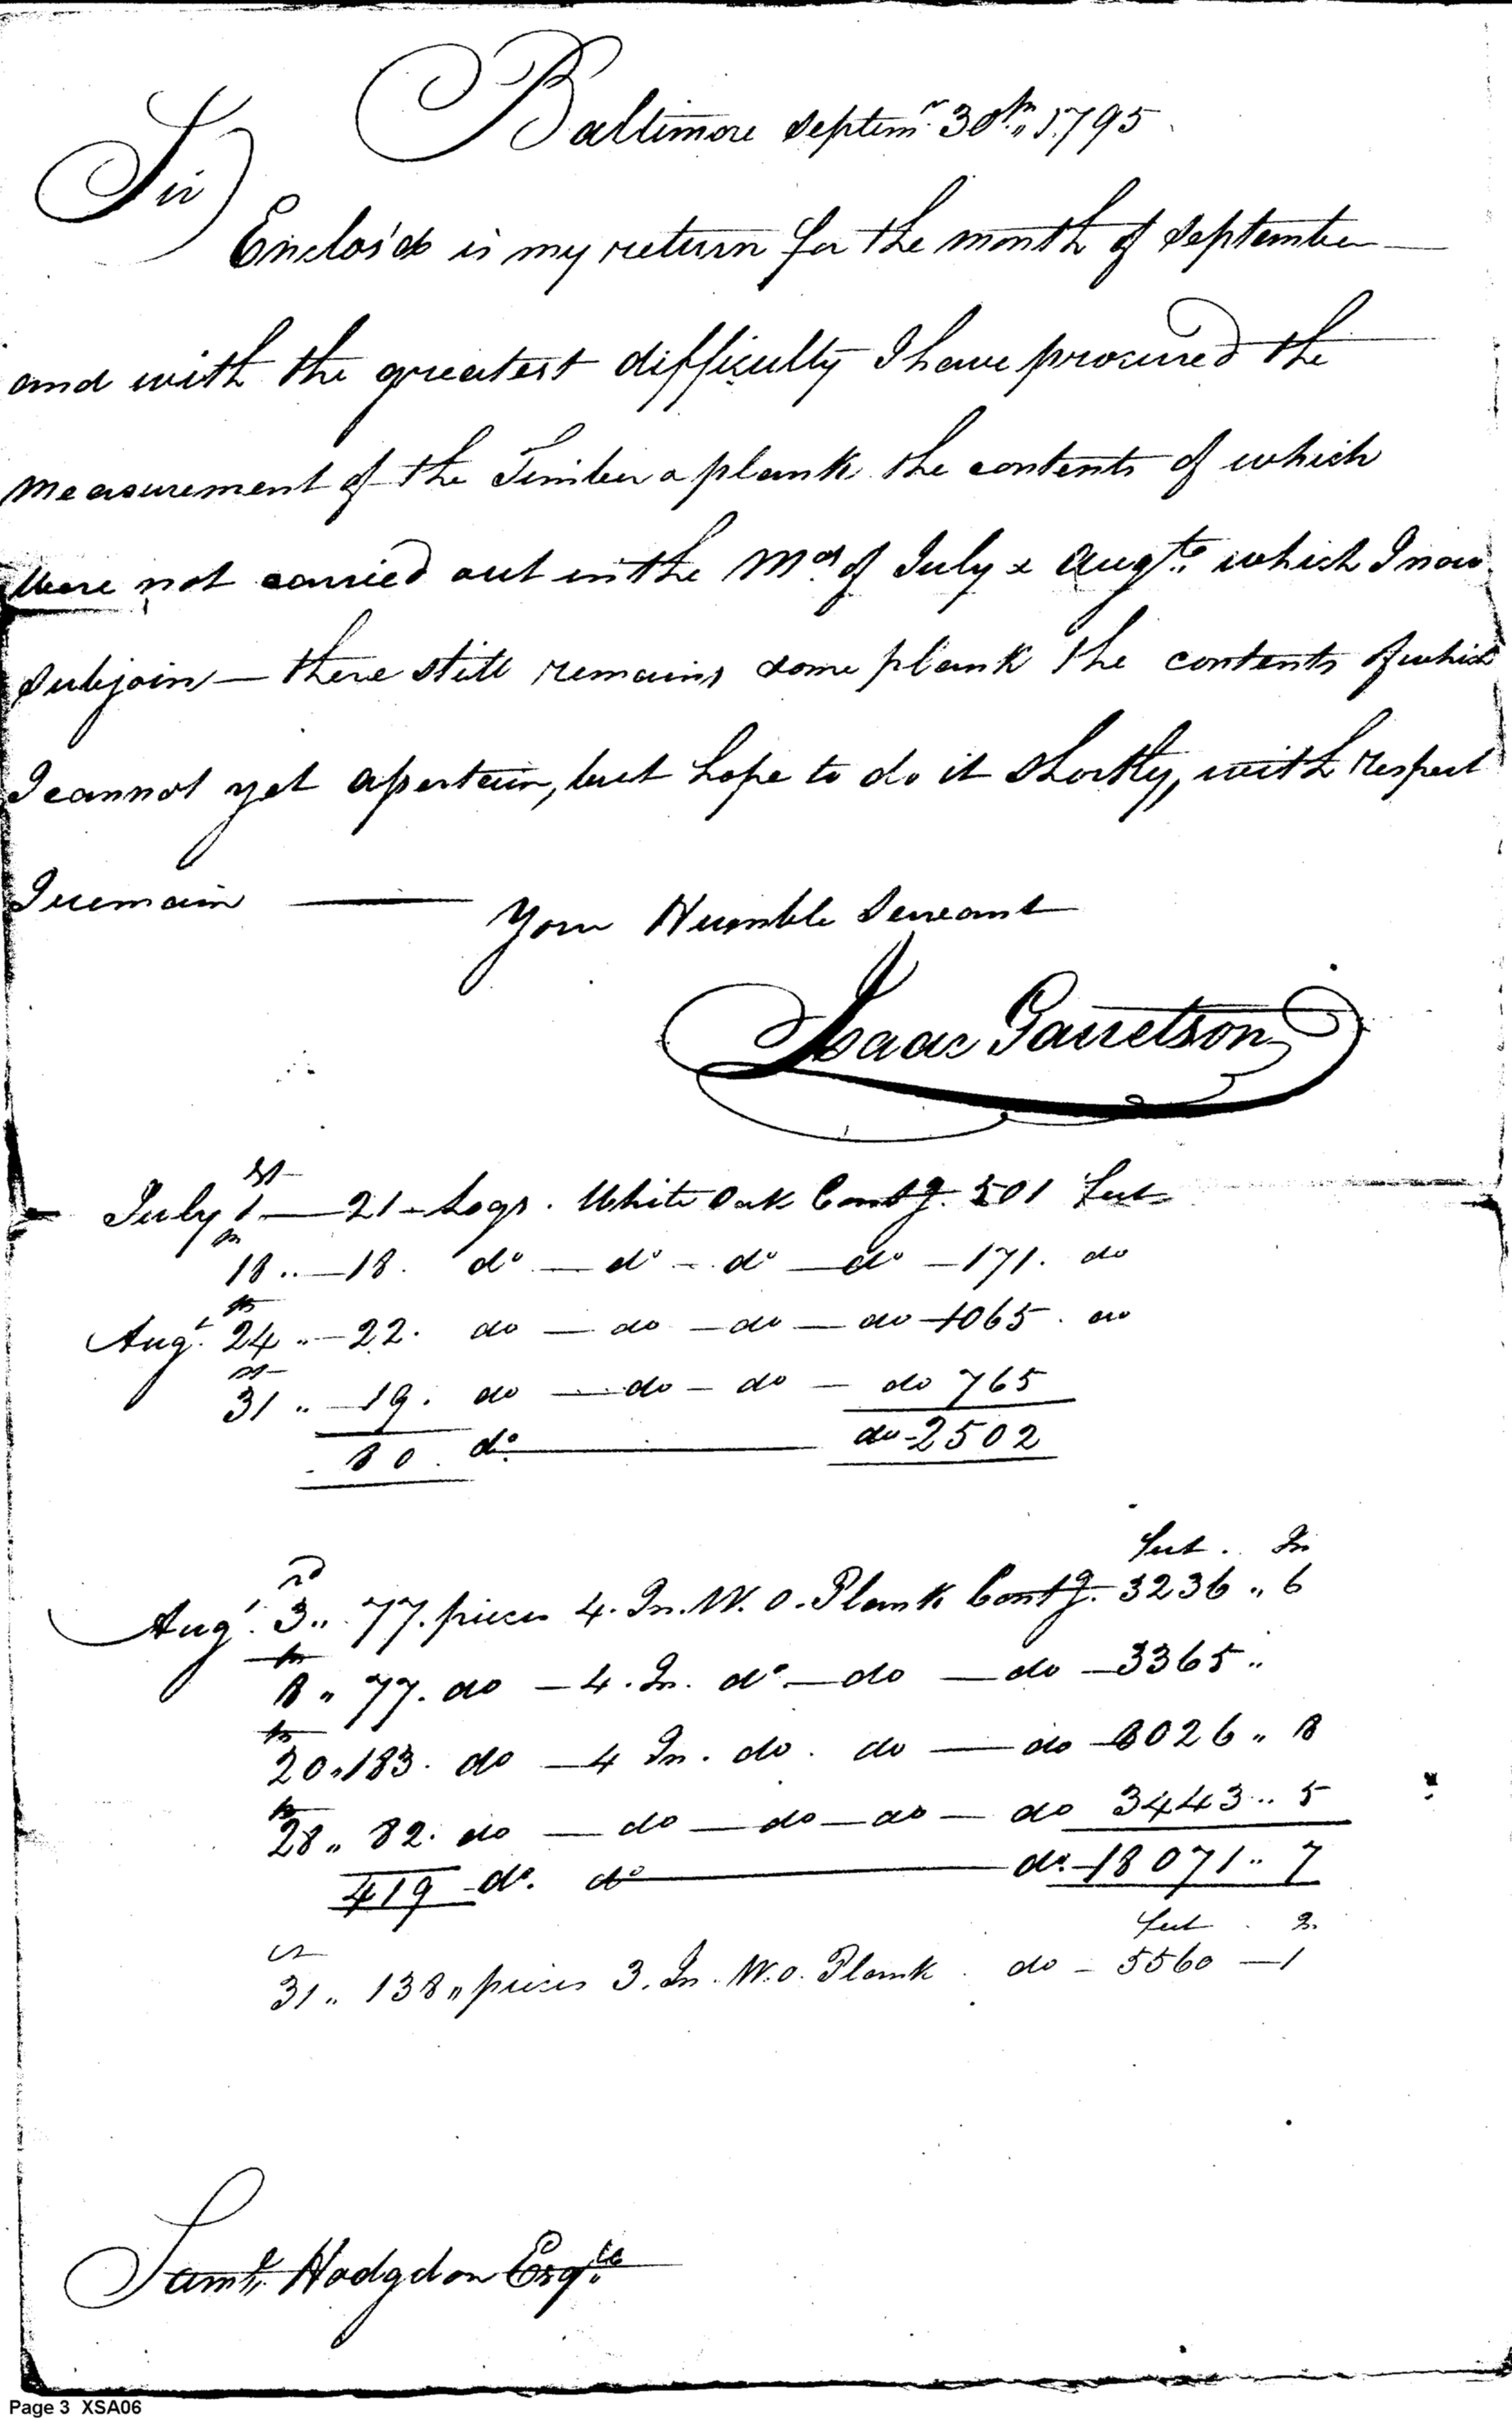 Baltimore Septemr. 30th. 1795
Sir
Enclos'd is my return for the month of September
and with the greatest difficulty I have procured the
measurement of the Timber & plank the contents of which
were not carried out in the Mos. of July & Augt. which I now
subjoin — there still remains some plank the contents of which
I cannot yet assertain, but hope to do it shortly, with respect
I remain — Your Humble Servant
Isaac Garretson
July 1st — 21 — Logs. White Oak Contg. 501 feet
18th .. — 18. do — do — do — do — 171. do
Augt. 24th .. — 22. do — do — do — do — 1065. do
31st .. — 19. do — do — do — do 765
80. do. — do — 2502
feet. In
Augt. 3rd .. 77. pieces 4. In. W. O. Plank Contg. 3236 .. 6
8th .. 77. do — 4. In. do — do — do — 3365 ..
20th .. 183. do — 4 In. do. do — do — 8026 .. 8
28th .. 82. do — do — do — do — do 3443 .. 5
419 do. do — do. — 18071 .. 7
feet. In
31st .. 138 .. pieces 3. In. W. O. Plank. do — 5560 — 1
Saml. Hodgdon Esqre.
Page 3 XSA06